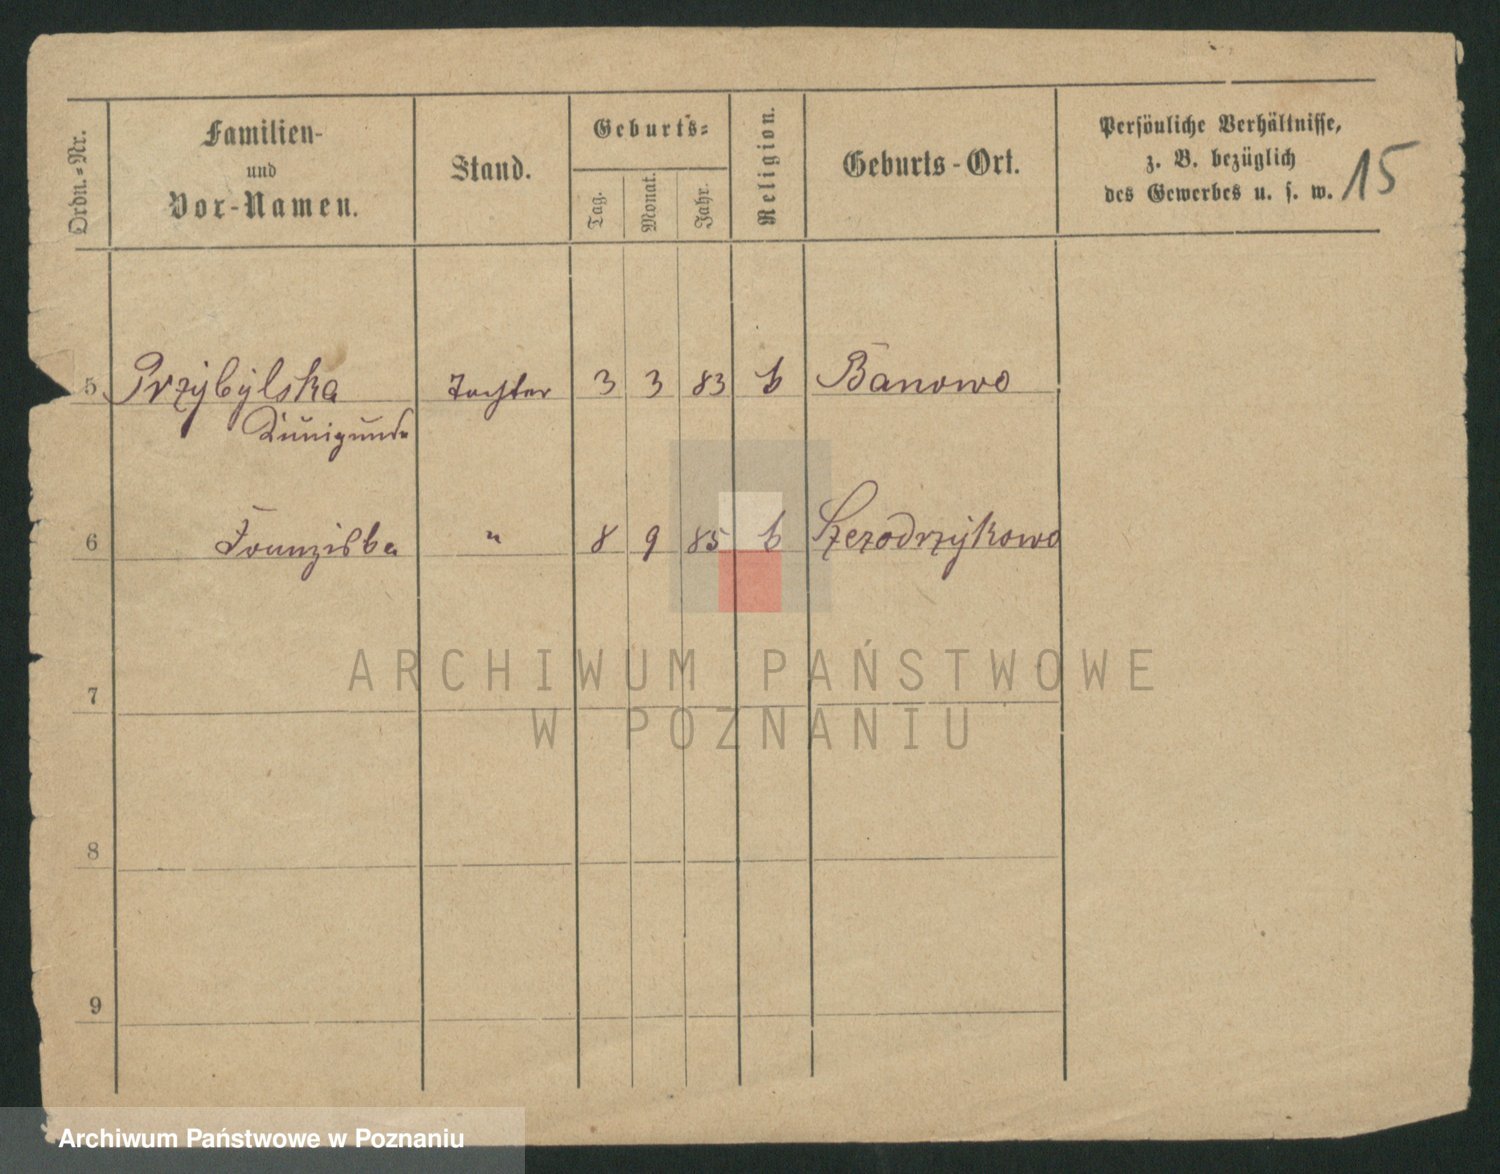 Ordn.-Nr.
Familien-
und
Vor-Namen.
Stand.
Geburts-
Tag.
Monat.
Jahr.
Religion.
Geburts-Ort.
Persönliche Verhältnisse,
z. B. bezüglich
des Gewerbes u. s. w.
15
5 Przybylska Tochter 3 3 83 k Banowo
Kunigunde
6 Franziska " 8 9 85 k
7
8
9
ARCHIWUM PAŃSTWOWE
W POZNANIU
Archiwum Państwowe w Poznaniu